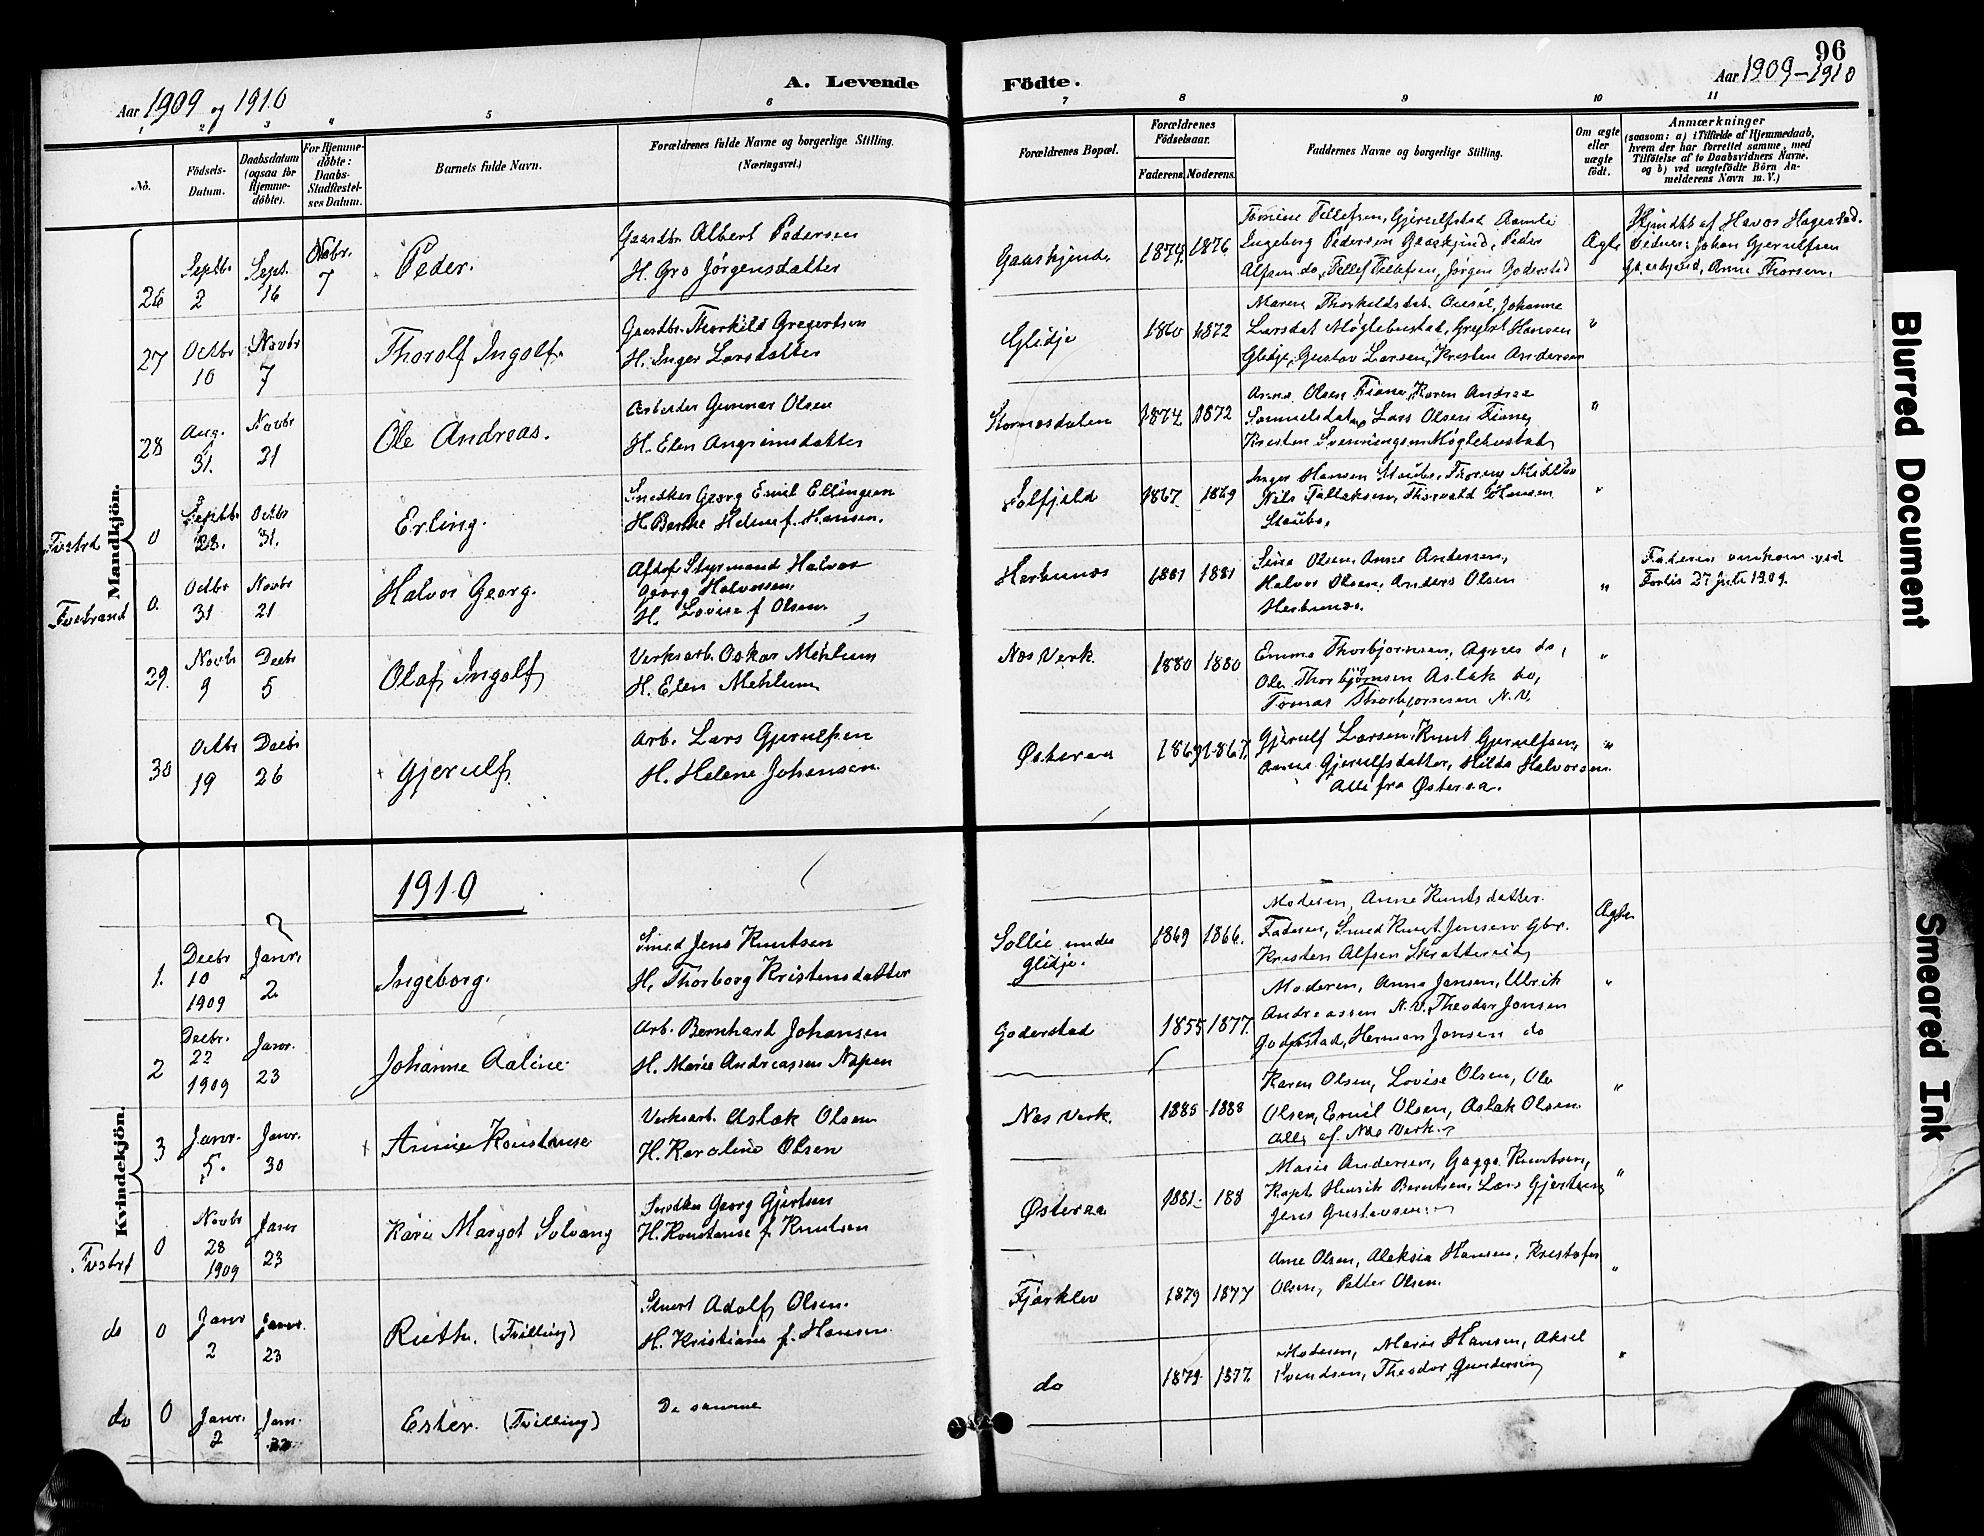 96
Aar 1909 og 1910
A. Levende Födte.
Aar 1909–1910
1 2 3 4 5 6 7 8 9 10 11
No.
Födsels-Datum.
Daabsdatum (ogsaa for Hjemme-döbte).
For Hjemme-döbte: Daabs-Stadfæstel-ses Datum.
Barnets fulde Navn.
Forældrenes fulde Navne og borgerlige Stilling.
(Næringsvei.)
Forældrenes Bopæl.
Forældrenes Födselsaar.
Faderens. Moderens.
Faddernes Navne og borgerlige Stilling.
Om ægte eller uægte födt.
Anmærkninger
(saasom: a) i Tilfælde af Hjemmedaab, hvem der har forrettet samme, med Tilföielse af to Daabsvidners Navne, og b) ved uægtefödte Börn Anmelderens Navn m. V.)
Mandkjön.
26 Septbr 2 Sept. 16 Novbr. 7
Peder.
Gaardbr. Albert Pedersen
H. Gro Jörgensdatter
Gaaskjend
1874 1876
Tellefsen, Gjerulfstad
Ingeborg Pedersen Gaaskjend, Peder
Alfsen do, Tellef Tellefsen, Jörgen Goderstad
Ægte
Hjmdbt af Havos Hagestad.
Vidner: Johan Gjerulfsen
Gaaskjend, Anne Thorsen.
27 Octbr 10 Novbr 7
Thorolf Ingolf.
Gaardbr. Thorkild Gregertsen
H. Inger Larsdatter
Glidje
1860 1872
Maren Thorkildsdat. Johanne
Larsdat Møglebustad, Gregert Hansen
Glidje, Gustav Larsen, Kristen Andersen
"
28 Aug. 31. Novbr 21
Ole Andreas.
Arbeider Gunnar Olsen
H. Elen Angrimsdatter
Stornesdalen
1874 1872
Anna Olsen Fiane, Karen Andrea
Samuelsdat, Lars Olsen Fiane,
Kristen Møglebustad
"
Tvestrd 0 Septbr 28. Octbr 31.
Erling.
Snedker Georg Emil Ellingsen
H. Helene f. Hansen.
Solfjeld
1867 1869
Inger Hansen Staubø,
Nils Tallaksen, Thorvald Hansen
Staubø,
"
Tvebrand 0. Octbr 31 Novbr 21
Halvor Georg.
Afdøde Styrmand Halvor
Georg Halvorsen
H. Lovise f Olsen.
Hesteness
1881 1881
Sina Olsen, Anne Andersen,
Halvor Olsen, Anders Olsen
"
Faderen omkom ved
Forlis 27 juli 1909.
29. Novbr 9 Decbr 5
Olaf Ingolf
Verksarb. Oskar Mehlum
H. Elen Mehlum
Næs Verk.
1880 1880
Emma Thorbjørnsen, Agnes do,
Ole Thorbjørnsen Aslak do,
Tomas Thorbjørnsen N.V.
"
30 Octbr 19 Decbr 26
Gjerulf
Arb. Lars Gjerulfsen
H. Helene Johensen
Østeraa
1869 1867.
Gjerulf Larsen, Knut Gjerulfsen,
Anne Gjerulfsdatter, Hilda Halvorsen
Alle fra Østeraa.
"
Kvindekjön.
1910
1. Decbr 10 1909 Janr. 2
Ingeborg.
Smed Jens Knutsen
H. Thorborg Kristensdatter
Sollie under
Glidje.
1869 1866.
Moderen, Anne Knutsdatter
Faderen, Smed Knut Jensen Gbr.
Kristen Alfsen Skratterei
Ægte
2 Decbr. 22 1909 Janr. 23
Johanne Aaline
Arb. Bernhard Johansen
H. Marie Andreassen Næpen
Goderstad
1855 1877.
Moderen, Anna Jensen, Ulrik
Andreassen N.V, Theodor Jensen
Goderstad, Herman Jensen do
"
3 Janr. 5. Janr. 30
Anne Konstanse
Verksarb. Aslak Olsen
H. Karoline Olsen
Næs Verk.
1885 1888
Karen Olsen, Lovise Olsen, Ole
Olsen, Emil Olsen, Aslak Olsen.
Alle af Næs Verk.
"
Tvestrd 0 Novbr 28 1909 Janr 23
Kare Margot Solvang
Snedker Georg Gjertsen
H. Konstanse f Knutsen
Østeraa
1881 188
Marie Andersen, Knutsen,
Kapt. Henrik Berntsen, Lars Gjertsen,
Jens Gustavsen
"
do 0 Janr 2 Janr. 23
Ruth. (Tvilling)
Stuert Adolf Olsen.
H. Kristiane f. Hansen
Fjærklev
1879 1877
Ane Olsen, Aleksia Hansen, Kristofer
Olsen, Petter Olsen.
"
do 0 Janr. 2 Janr. 23
Ester. (Tvilling)
De samme
do
1879 1877
Moderen, Marie Hansen, Aksel
Svendsen, Theodor Gundersen
"
Blurred Document
Smeared Ink